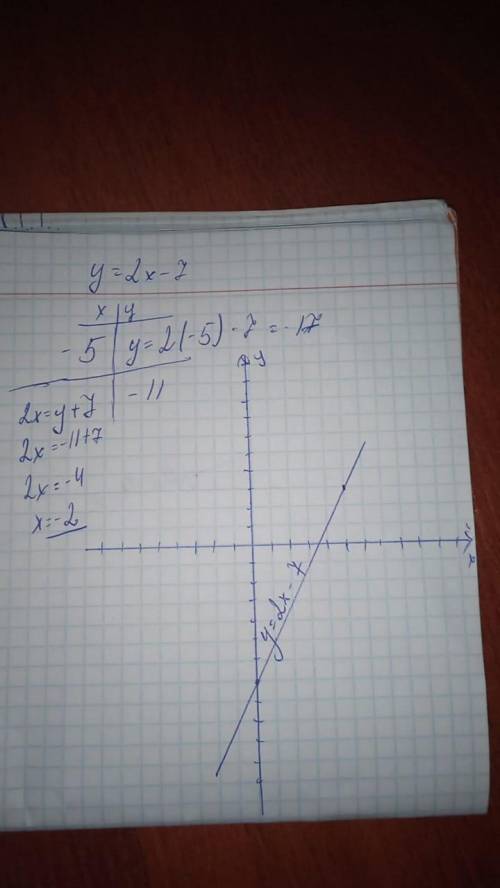 y = 2x - 7
x | y
-5 | y = 2(-5) - 7 = -17
2x = y + 7 | -11
2x = -11 + 7
2x = -4
x = -2
y
x
y = 2x - 7